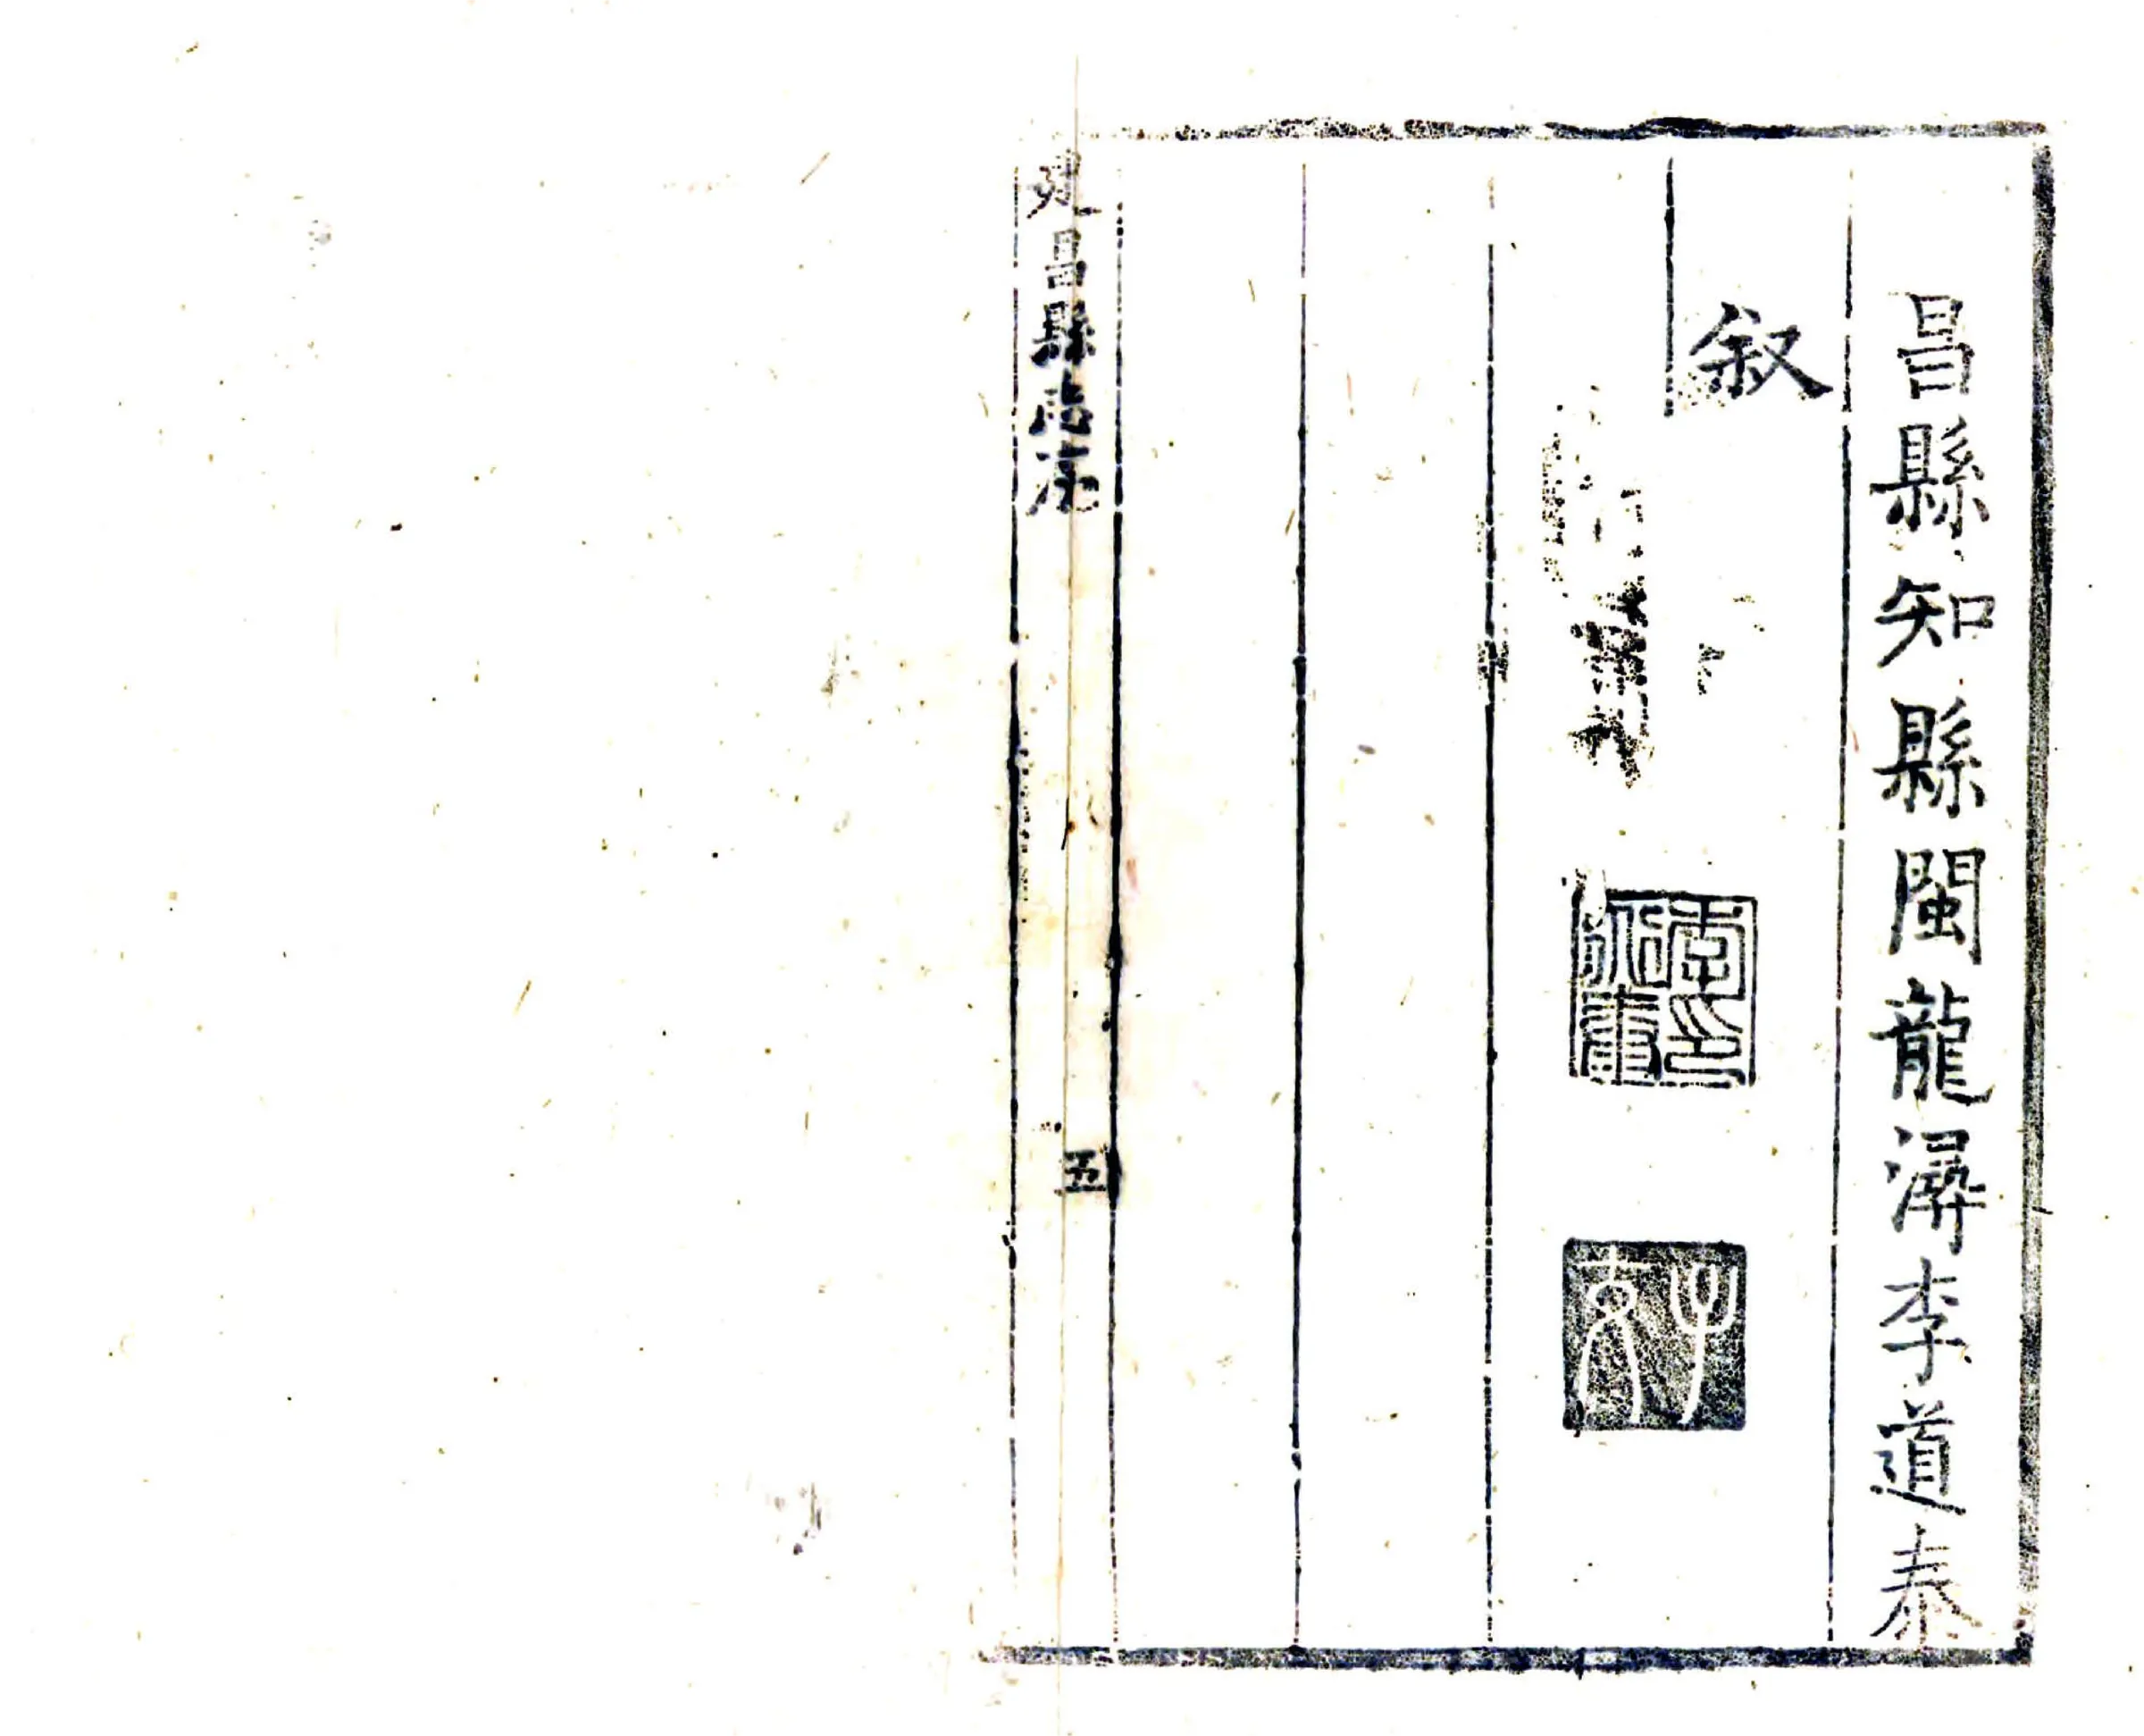 昌縣知縣閩龍潯李道泰
叙
建昌縣志序
五